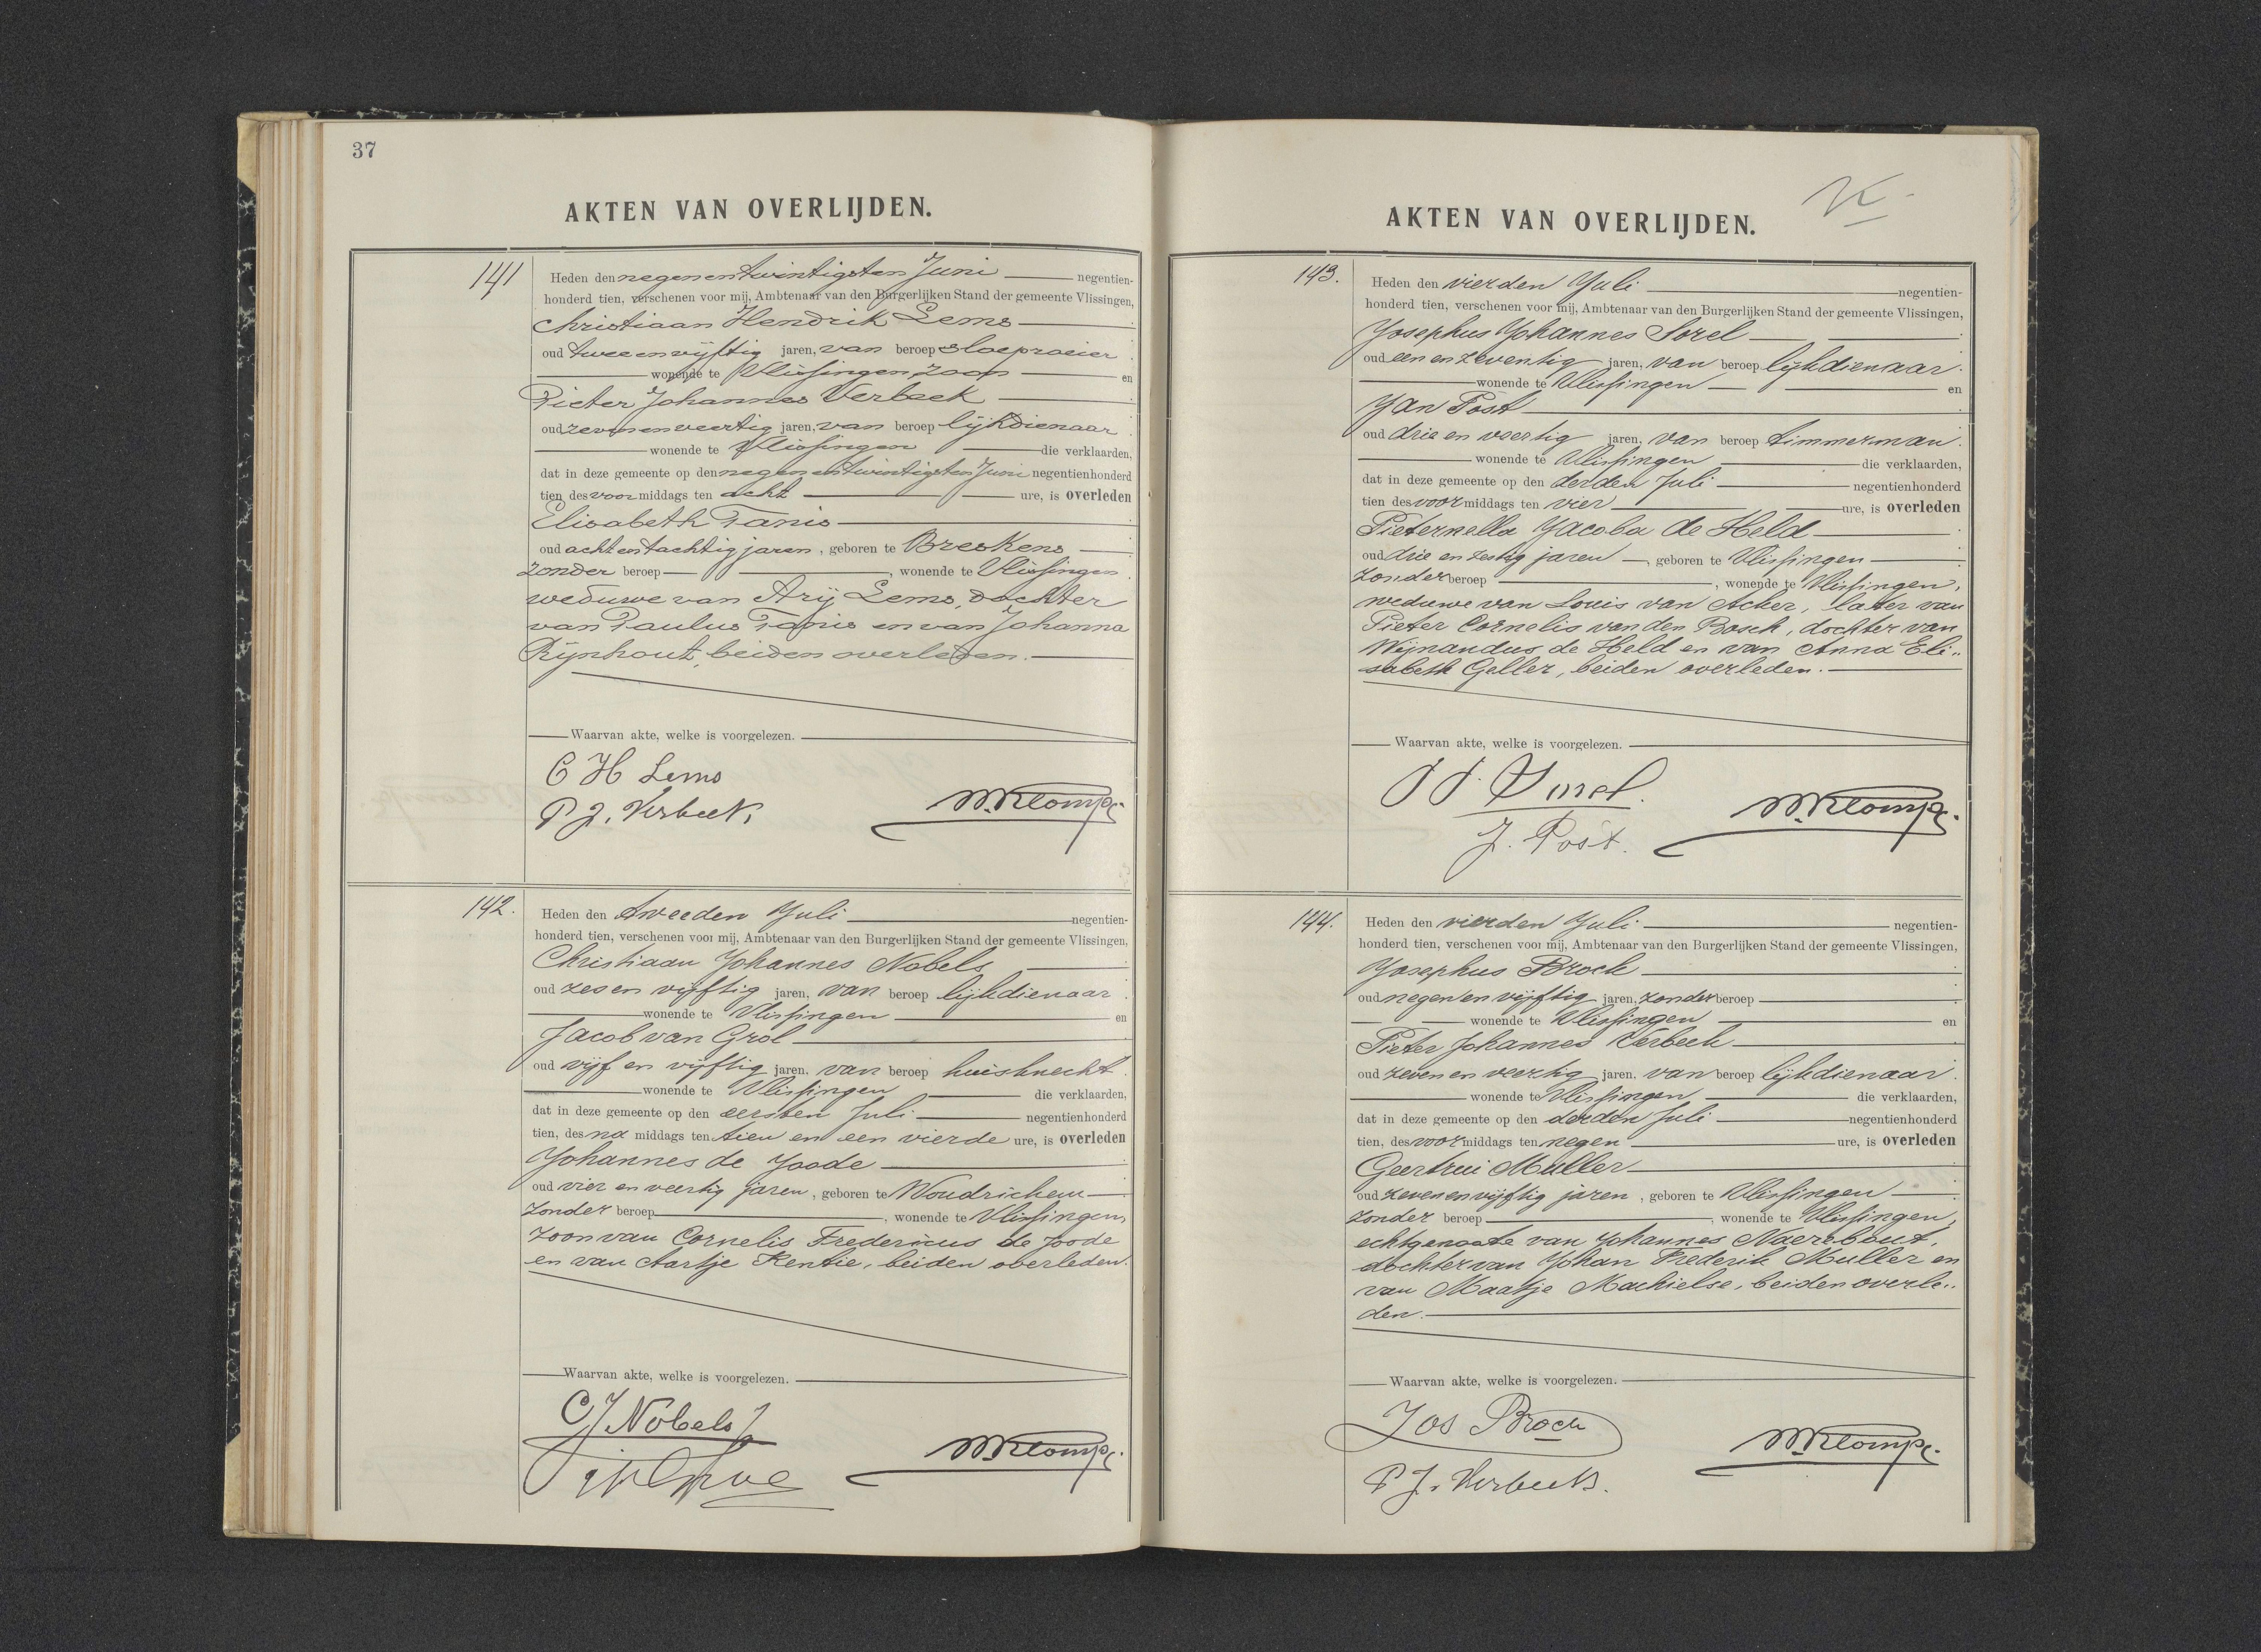 37
AKTEN VAN OVERLIJDEN.
141
Heden den negenentwintigsten Juni negentien-
honderd tien, verschenen voor mij, Ambtenaar van den Burgerlijken Stand der gemeente Vlissingen,
Christiaan Hendrik Lems
oud tweeenvijftig jaren, van beroep sloeproeier
wonende te Vlissingen, zoon en
Pieter Johannes Verbeek
oud zevenenveertig jaren, van beroep lijkdienaar
wonende te Vlissingen die verklaarden,
dat in deze gemeente op den negenentwintigsten Juni negentienhonderd
tien des voormiddags ten acht ure, is overleden
Elisabeth Tanis
oud achtentachtig jaren, geboren te Breskens
zonder beroep, wonende te Vlissingen
weduwe van Arij Lems, dochter
van Paulus Tanis en van Johanna
Rijnhout, beiden overleden.
Waarvan akte, welke is voorgelezen.
C H Lems
P J. Verbeek
W. Klomp.
142.
Heden den tweeden Juli negentien-
honderd tien, verschenen voor mij, Ambtenaar van den Burgerlijken Stand der gemeente Vlissingen,
Christiaan Johannes Nobels
oud zes en vijftig jaren, van beroep lijkdienaar
wonende te Vlissingen en
Jacob van Grol
oud vijf en vijftig jaren, van beroep huisknecht
wonende te Vlissingen die verklaarden,
dat in deze gemeente op den eersten Juli negentienhonderd
tien, des na middags ten tien en een vierde ure, is overleden
Johannes de Joode
oud vier en veertig jaren, geboren te Woudrichem
zonder beroep, wonende te Vlissingen,
zoon van Cornelis Fredericus de Joode
en van Aartje Rentie, beiden overleden.
Waarvan akte, welke is voorgelezen.
C J Nobels
W. Klomp.
AKTEN VAN OVERLIJDEN.
143.
Heden den vierden Juli negentien-
honderd tien, verschenen voor mij, Ambtenaar van den Burgerlijken Stand der gemeente Vlissingen,
Josephus Johannes Sorel
oud een en zeventig jaren, van beroep lijkdienaar.
wonende te Vlissingen en
Jan Post
oud drie en veertig jaren, van beroep timmerman.
wonende te Vlissingen die verklaarden,
dat in deze gemeente op den derden Juli negentienhonderd
tien des voormiddags ten vier ure, is overleden
Pieternella Jacoba de Held
oud drie en zestig jaren, geboren te Vlissingen
zonder beroep, wonende te Vlissingen,
weduwe van Louis van Acker, later van
Pieter Cornelis van den Bosch, dochter van
Wijnandus de Held en van Anna Eli„
sabeth Geller, beiden overleden.
Waarvan akte, welke is voorgelezen.
J J. Sorel.
J. Post.
W. Klomp.
144.
Heden den vierden Juli negentien-
honderd tien, verschenen voor mij, Ambtenaar van den Burgerlijken Stand der gemeente Vlissingen,
Josephus Broch
oud negen en vijftig jaren, zonder beroep
wonende te Vlissingen en
Pieter Johannes Verbeek
oud zeven en veertig jaren, van beroep lijkdienaar.
wonende te Vlissingen die verklaarden,
dat in deze gemeente op den derden Juli negentienhonderd
tien, des voormiddags ten negen ure, is overleden
Geertrui Muller
oud zeven en vijftig jaren, geboren te Vlissingen
zonder beroep, wonende te Vlissingen,
echtgenoote van Johannes Naerebout,
dochter van Johan Frederik Muller en
van Maatje Machielse, beiden overle„
den.
Waarvan akte, welke is voorgelezen.
Jos Broch
P J. Verbeek.
W. Klomp.